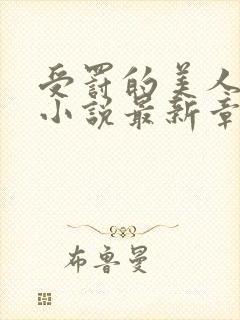 受罚的美人
小说最新章
布鲁曼